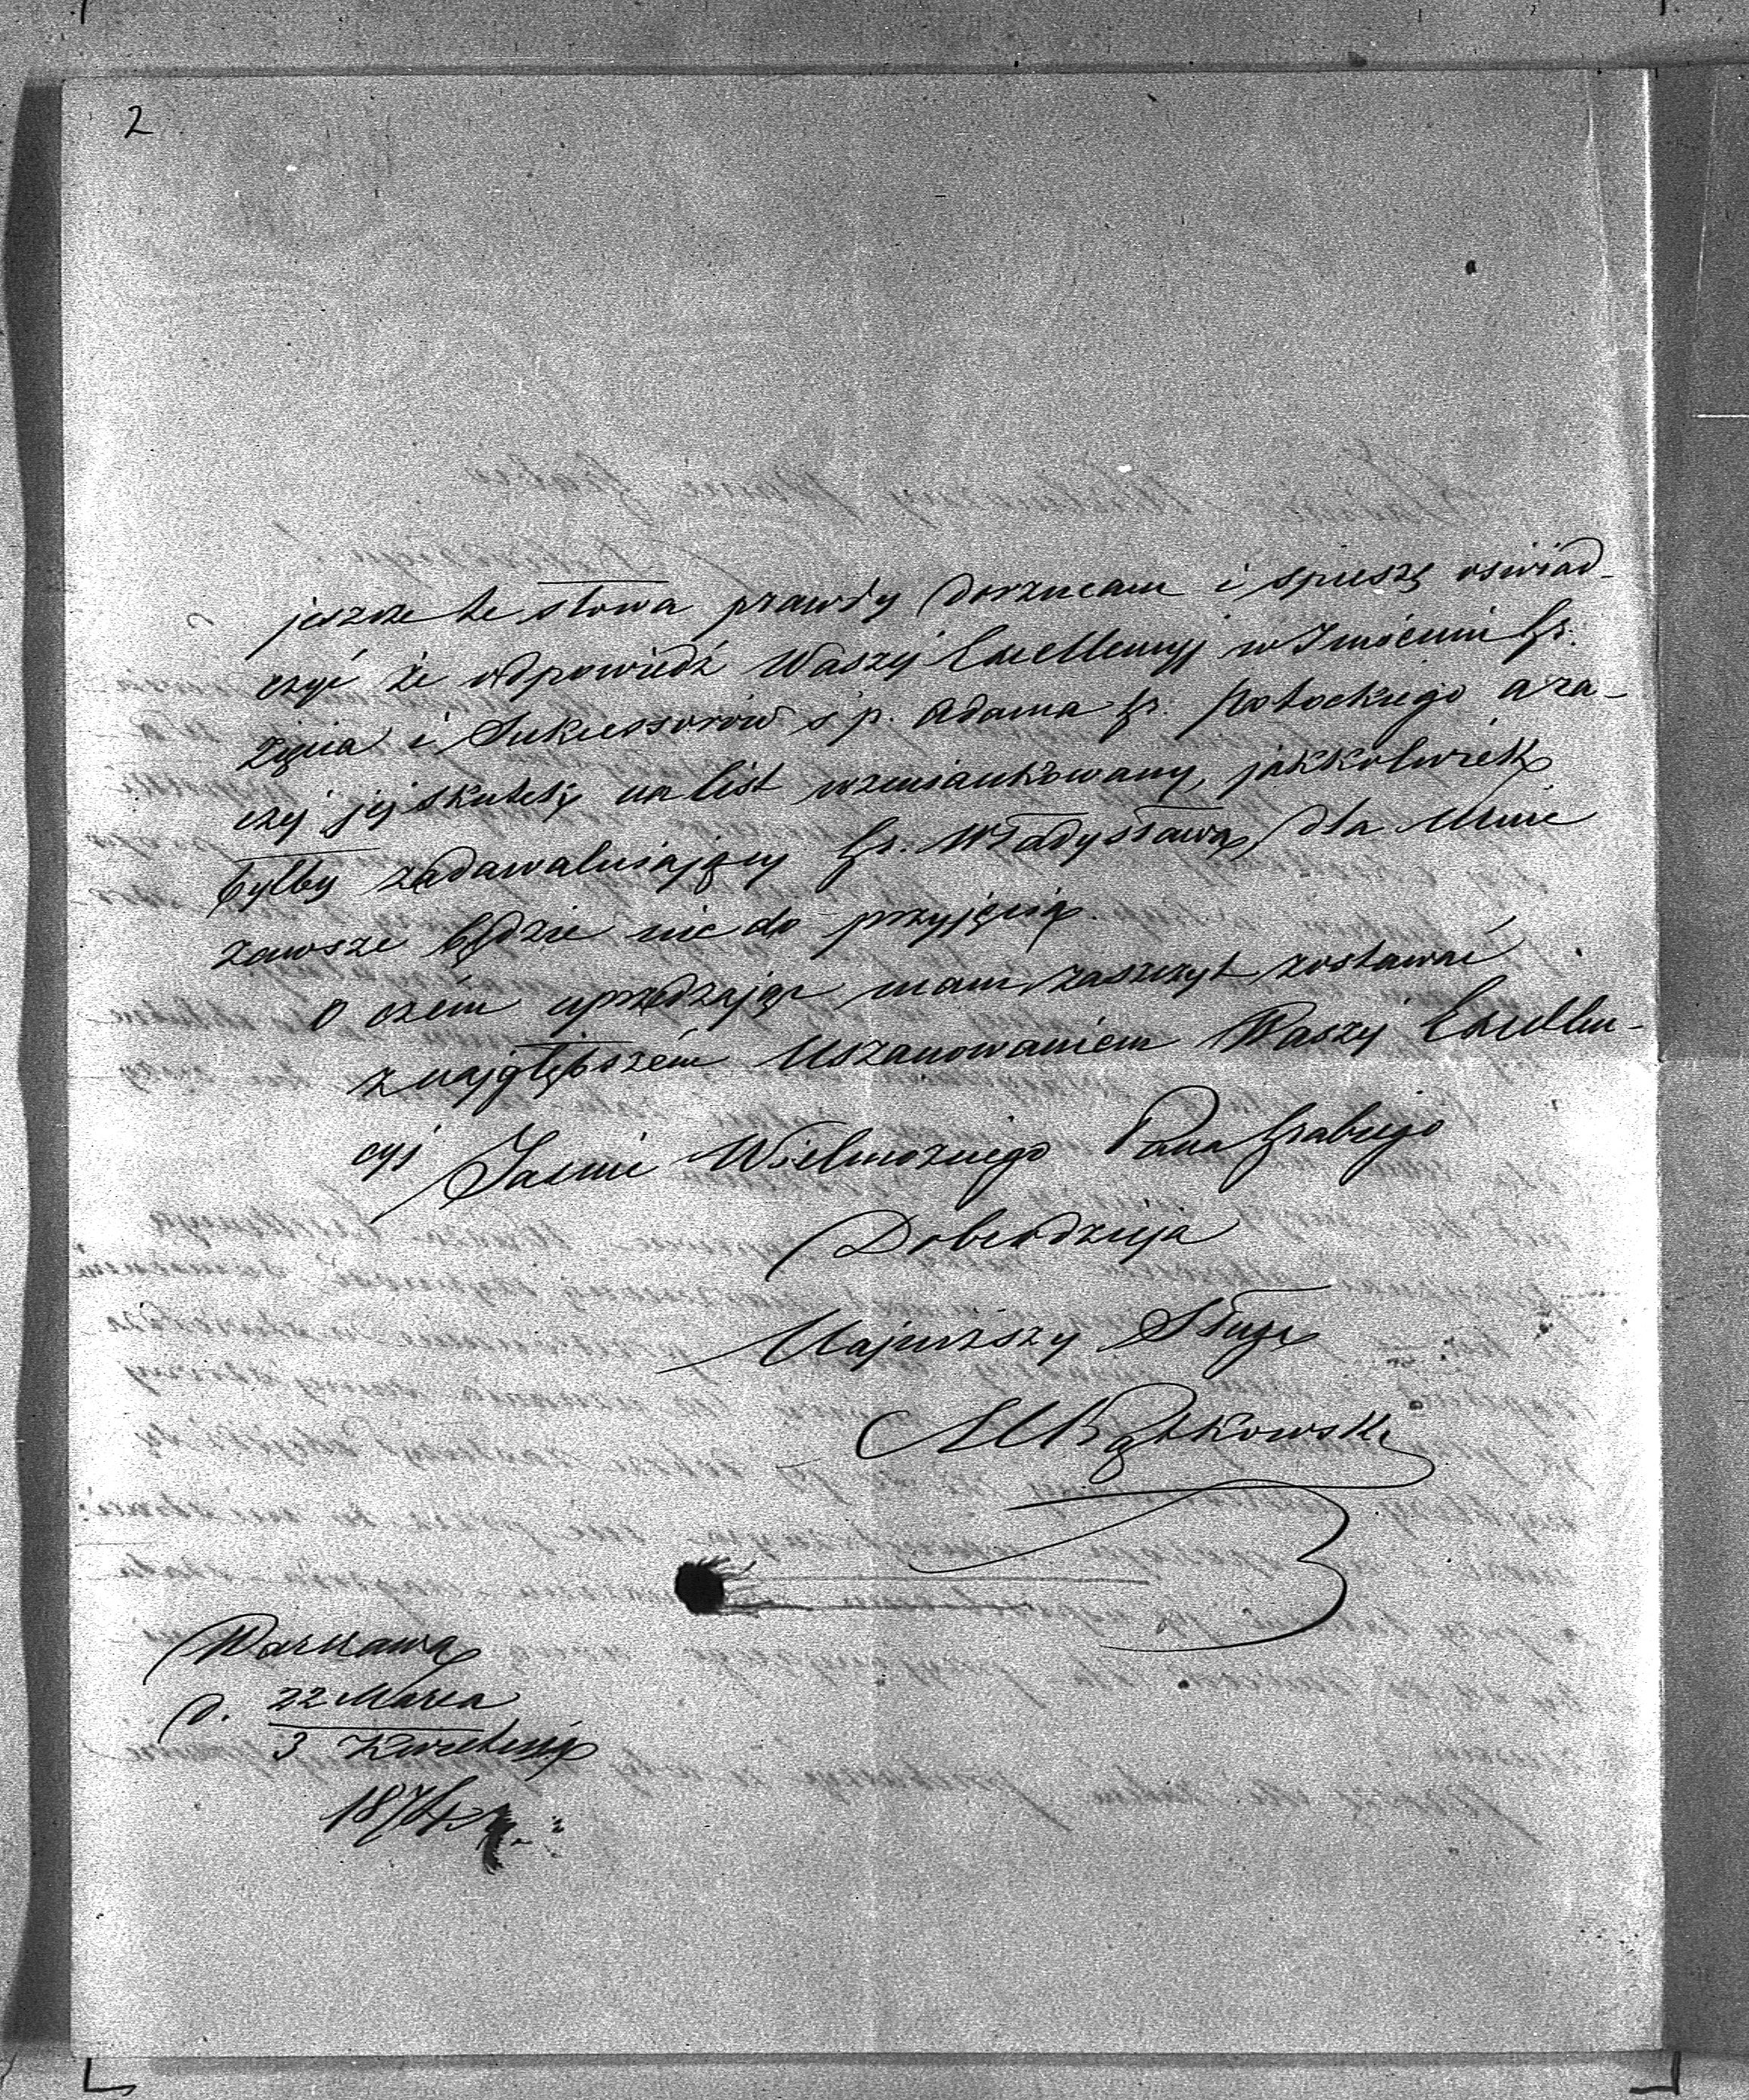 2
jeszcze te słowa prawdy dorzucam i spieszę oświad-
czyć że odpowiedź Waszéj Excellencyj w Imieniu Hr.
zięcia i Sukcessorów ś p. Adama Hr. Potockiego a ra-
czéj jéj skutek na list wzmiankowany, jakkolwiek
byłby zadawalniający Hr. Władysława, dla Mnie
zawsze będzie nie do przyjęcia.
O czém uprzedzając mam zaszczyt zostawać
z najgłębszém Uszanowaniem Waszéj Excellen-
cyi Jaśnie Wielmożnego Pana Hrabiego
Dobrodzieja
Najniższy Sługa
M Bątkowski
Warszawa
d. 22 Marca
3 Kwietnia
1874 r.